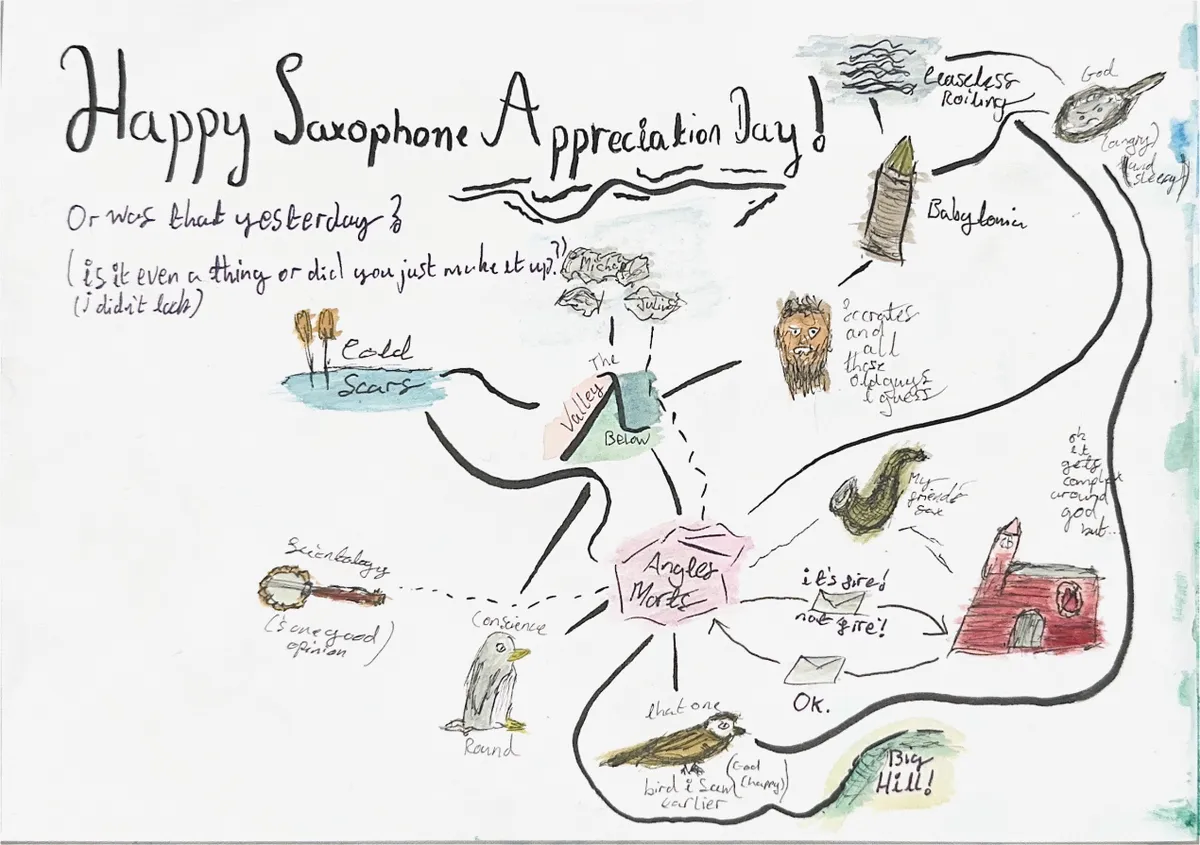 Happy Saxophone Appreciation Day!
Or was that yesterday?
(is it even a thing or did you just make it up?)
(i didn't look)
Ceaseless
Roiling
God
(angry)
(and
sleepy)
Babylonia
Michael
Julius
The
Valley
Below
Cold
Scars
Socrates
and
all
those
old guys
I guess
My
friend's
sax
oh
it
gets
complex
around
god,
but...
Scientology
(is one good)
opinion
Angles
Morts
it's fire!
not fire!
OK.
Conscience
Round
that one
bird i saw
earlier
(God
(happy)
Big
Hill!